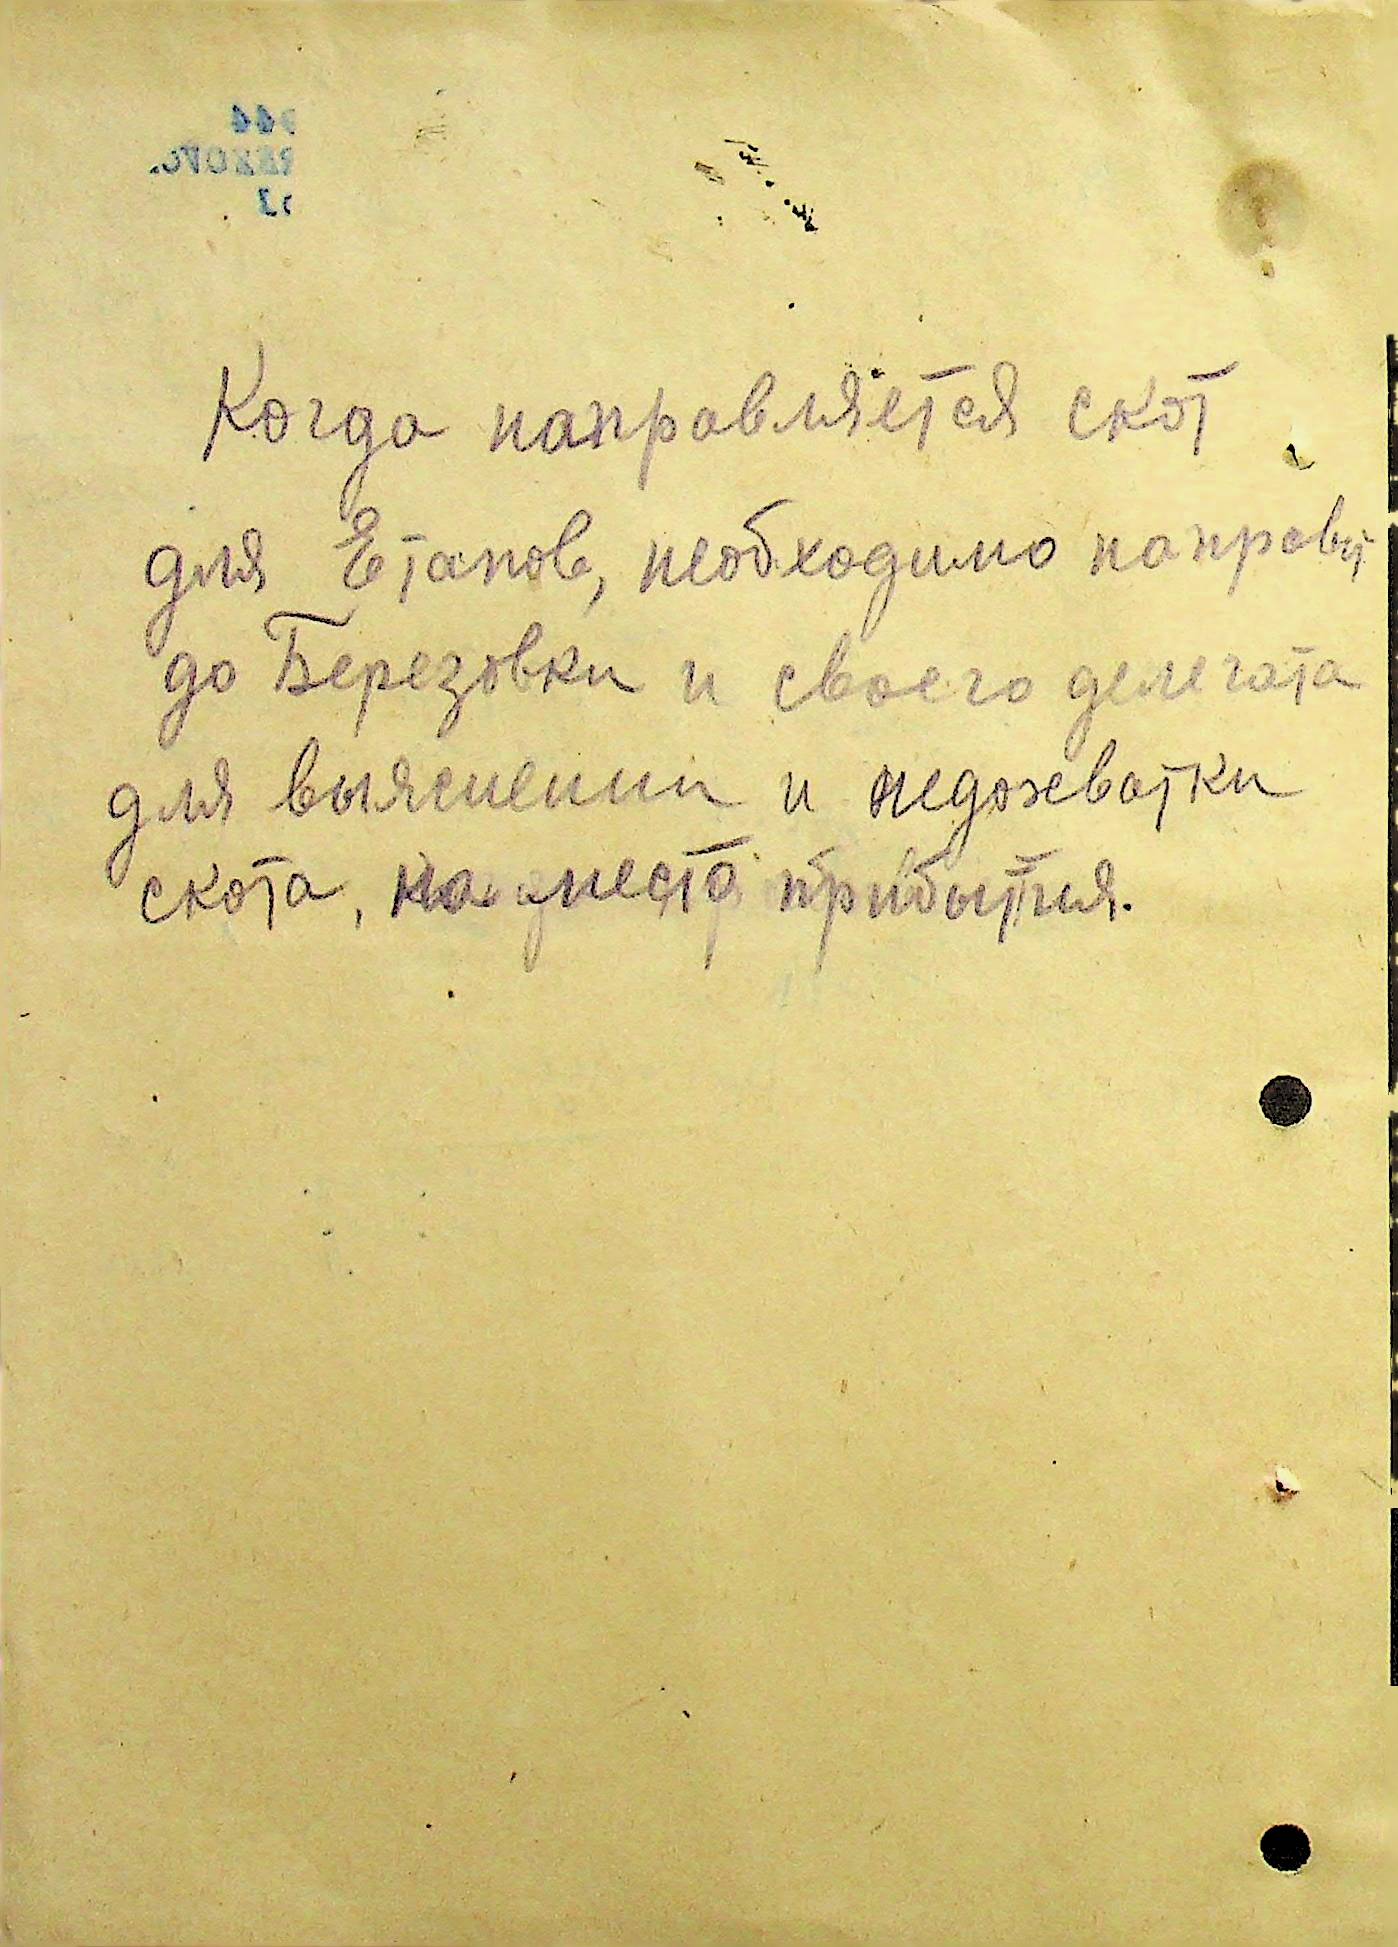 Когда направляется скот
для Етапов, необходимо направит
до Березовки и своего делегата
для выяснении и недохватки
скота, на места прибытия.